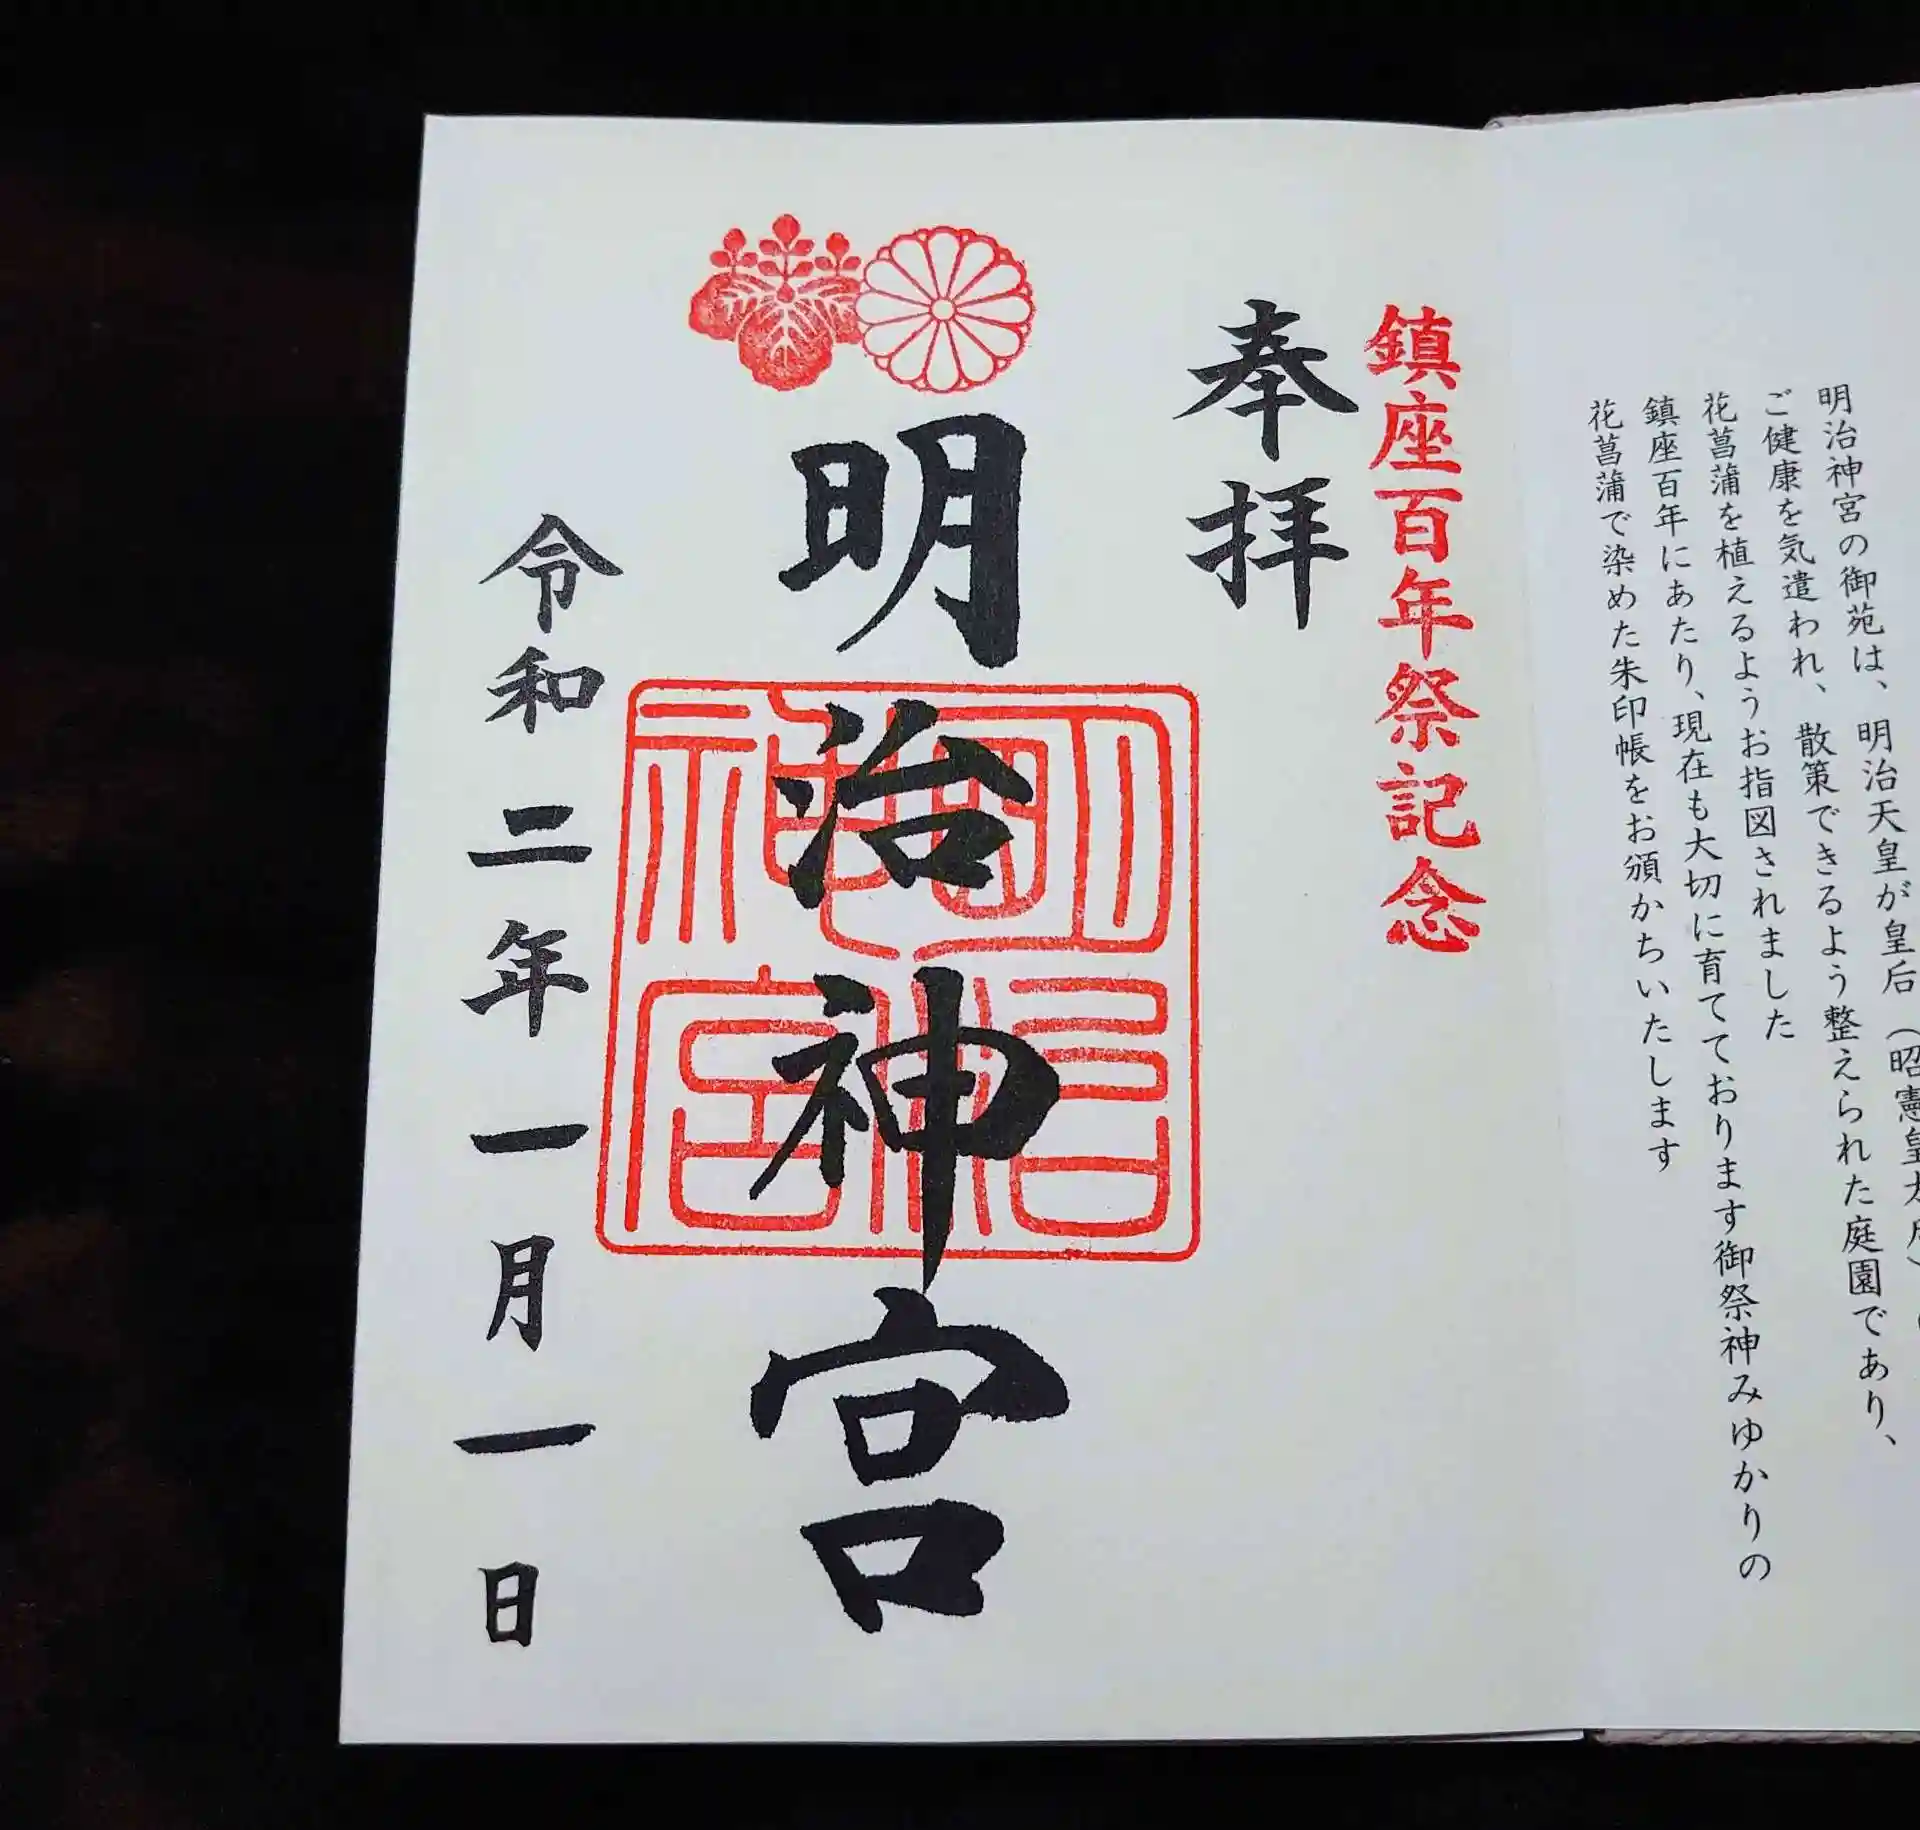 明治神宮の御苑は、明治天皇が皇后（昭憲皇太后）
ご健康を気遣われ、散策できるよう整えられた庭園であり、
花菖蒲を植えるようお指図されました
鎮座百年にあたり、現在も大切に育てております御祭神みゆかりの
花菖蒲で染めた朱印帳をお頒かちいたします
鎮座百年祭記念
奉拝
明治神宮
明治神宮
令和二年一月一日